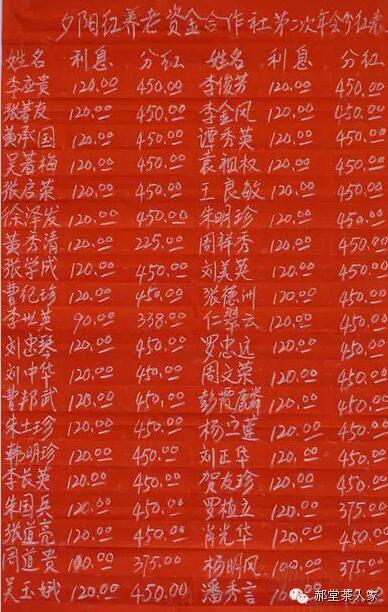 夕阳红养老资金合作社第二次年会分红表
姓名 利息 分红 姓名 利息 分红
李应贵 120.00 450.00 李俊芳 120.00 450.00
张著友 120.00 450.00 李金风 120.00 450.00
黄承国 120.00 450.00 谭秀英 120.00 450.00
吴著梅 120.00 450.00 袁祖权 120.00 450.00
张启荣 120.00 450.00 王良敏 120.00 450.00
徐泽发 120.00 450.00 朱明珍 120.00 450.00
黄秀清 120.00 225.00 周祥秀 120.00 450.00
张学成 120.00 450.00 刘美英 120.00 450.00
曹纪珍 120.00 450.00 张德洲 120.00 450.00
李世英 90.00 338.00 仁翠云 120.00 450.00
刘忠琴 120.00 450.00 罗忠远 120.00 450.00
刘中华 120.00 450.00 周文荣 120.00 450.00
曹邦武 120.00 450.00 彭霞麟 120.00 450.00
朱士珍 120.00 450.00 杨立莲 120.00 450.00
韩明珍 120.00 450.00 刘正华 120.00 450.00
李长英 120.00 450.00 贺友珍 120.00 450.00
朱国兵 120.00 450.00 罗植立 120.00 375.00
张道亮 120.00 450.00 肖光华 120.00 450.00
周道贵 100.00 375.00 杨明风 100.00 375.00
吴玉娥 120.00 450.00 潘秀言
郝堂茶人家